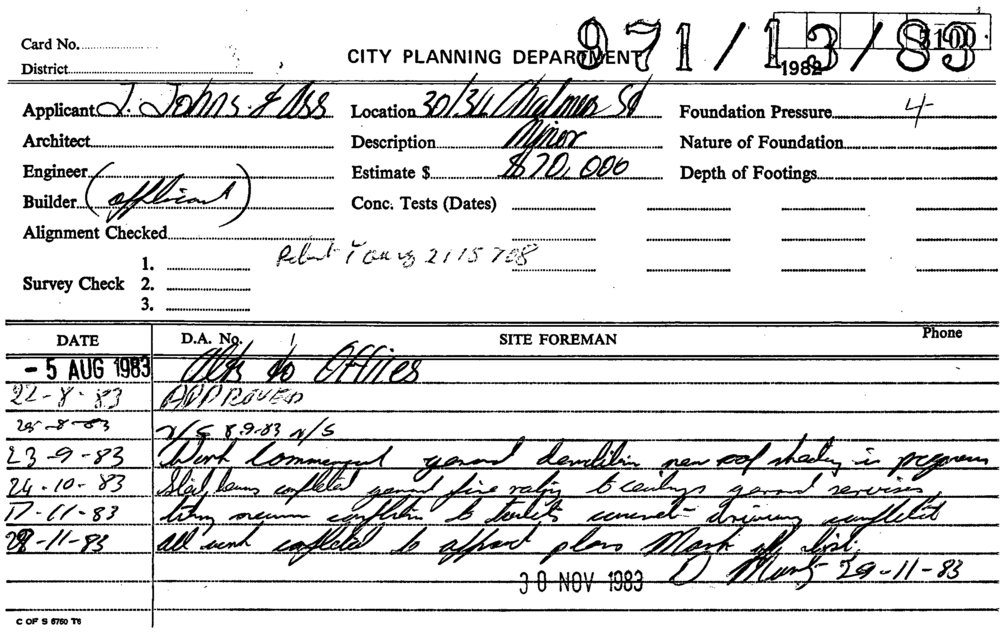 971/13/83
3100
Card No.
CITY PLANNING DEPARTMENT
1982
District
Applicant J. Johns & Ass Location 30/34 Chalmers St Foundation Pressure 4
Architect Description Minor Nature of Foundation
Engineer Estimate $ $70,000 Depth of Footings
Builder (applicant) Conc. Tests (Dates)
Alignment Checked
Young 2115708
1.
Survey Check 2.
3.
DATE D.A. No. SITE FOREMAN Phone
- 5 AUG 1983 Alts to Offices
22-8-83 APPROVED
25-8-83 N/S 8.9.83 N/S
23-9-83 Work Commenced general demolition new roof sheeting in progress
24-10-83 Steel beams completed general fire rating to ceilings general services
17-11-83 completion to toilets completed
28-11-83 All work completed to approved plans Mark off list.
30 NOV 1983 D 29-11-83
C OF S 6760 T6